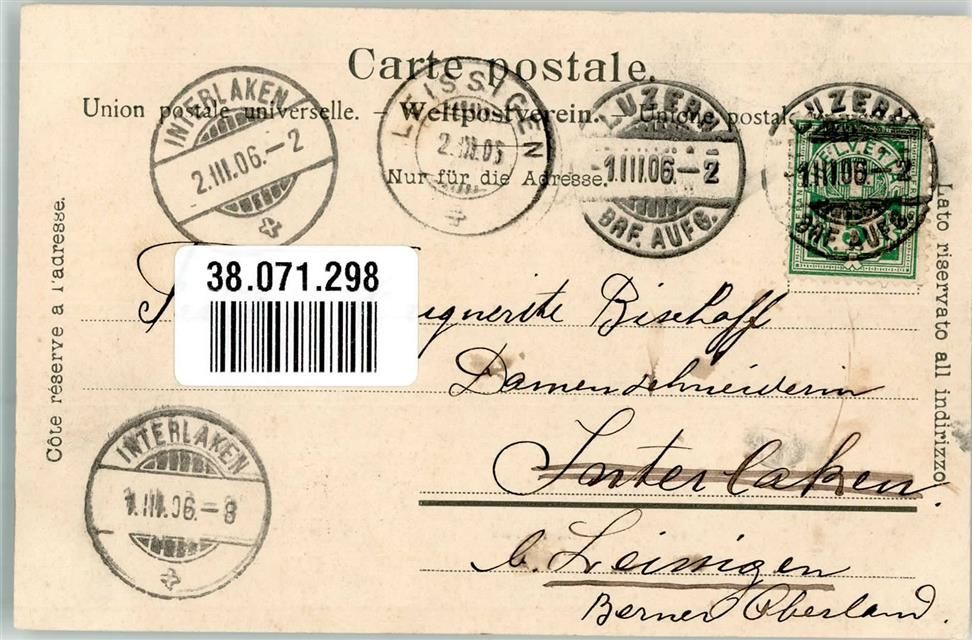 Carte postale.
Union postale universelle. – Weltpostverein. – Unione postale
Nur für die Adresse.
INTERLAKEN
2.III.06.–2
LEISSIGEN
2.III.06
LUZERN
1.III.06.–2
BRF. AUFG.
LUZERN
1.III.06.–2
BRF. AUFG.
HELVETIA
Côte réservé à l'adresse.
Lato riservato all indirizzo.
38.071.298
Bischoff
Damenschneiderin
Interlaken
b. Leissigen
Berner Oberland.
INTERLAKEN
1.III.06.–8